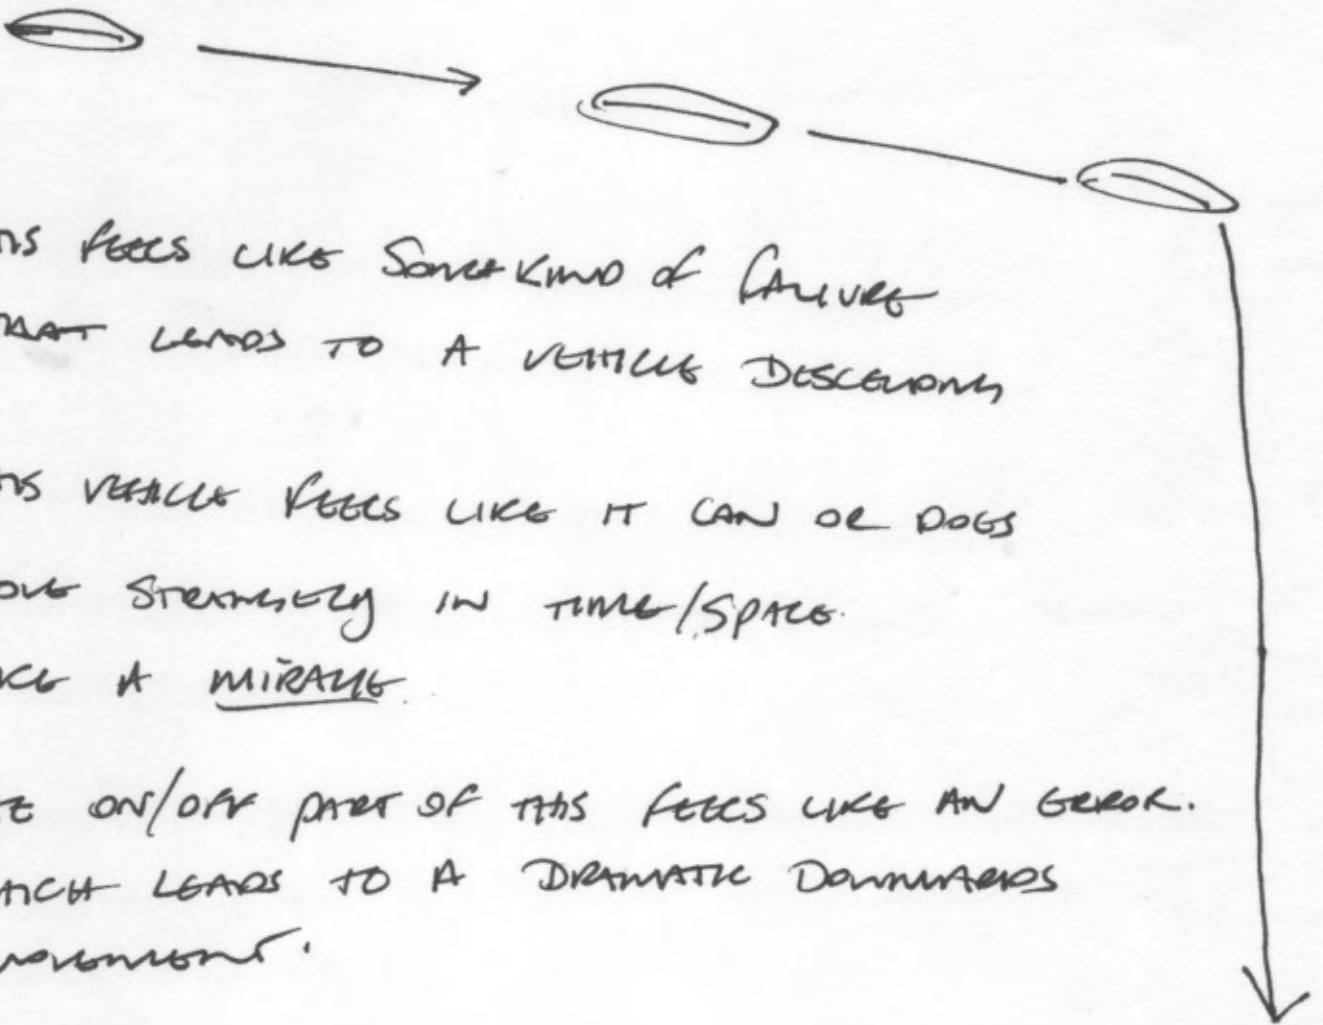 HIS FEELS LIKE SOME KIND OF FALIURE
THAT LEADS TO A VEHICLE DESCENDING
HIS VEHICLE FEELS LIKE IT CAN OR DOES
OVE STRANGELY IN TIME/SPACE.
KE A MIRAGE.
E ON/OFF PART OF THIS FEELS LIKE AN ERROR.
HICH LEADS TO A DRAMATIC DOWNWARDS
MOVEMENT.